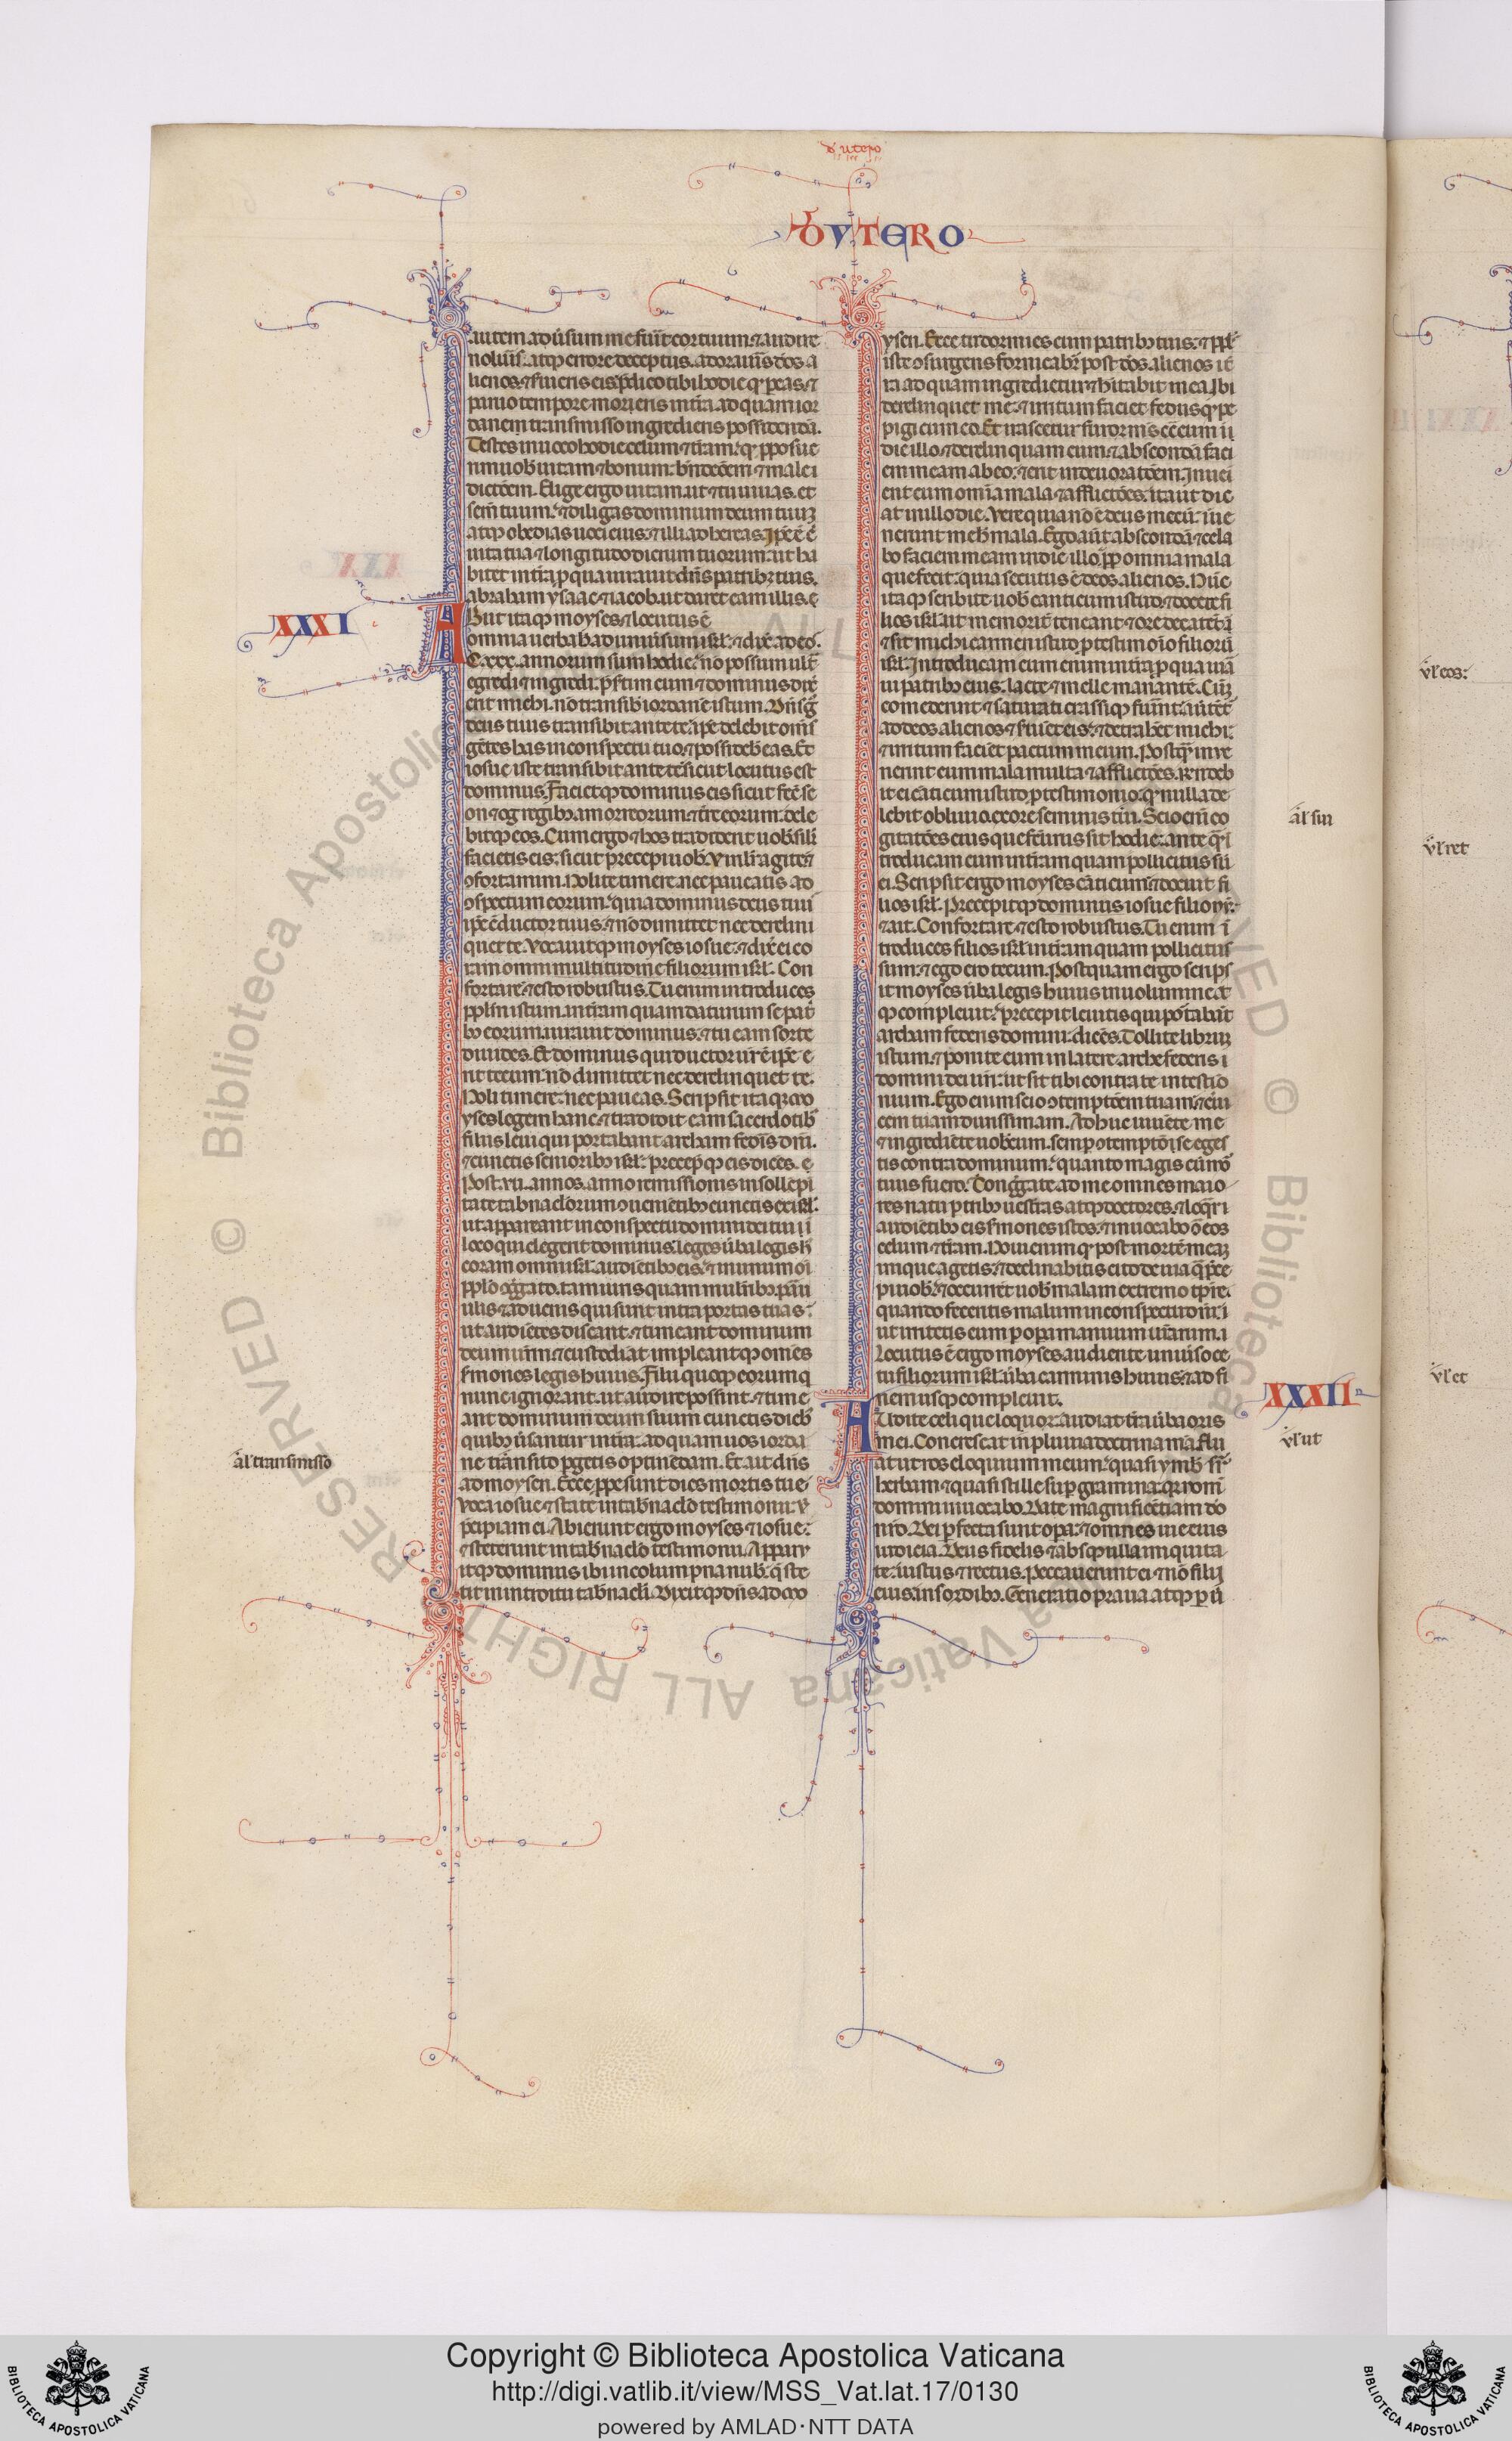 d' utero
D'VTERO
autem aduersum me fuit cor tuum ⁊ audire
noluis. atqꝫ errore deceptus. adorauis deos a
lienos ⁊ suieris eis p̄dico tibi hodie qꝫ peas ⁊
paruo tempore moriens in tr̄a. ad quam ior
danem transmisso ingredieris possidendā.
Testes inuoco hodie celum ⁊ tr̄am. qꝫ pposue
rim uob̄ uitam ⁊ bonum. bn̄dcōem ⁊ malei
dictōem. Elige ergo uitam. ut ⁊ tu uiuas. et
sem̄ tuum. ⁊ diligas dominum deum tuuꝫ
atqꝫ obedias uoci eius. ⁊ illi adhereas. Ip̄e ē ē
uita tua ⁊ longitudo dierum tuorum. ut ha
bitet in tr̄a p qua iurauit dn̄s patribꝫ tuis.
abraham ysaac ⁊ iacob. ut daret eam illis. e
XXXI
ABiit itaqꝫ moyses ⁊ locutus ē
omnia uerba hc̄ ad uniuersum isrl̄. ⁊ dix̄. ad eos.
C. xxx. annorum sum hodie. no possum ult̄
egredi ⁊ ingredi. p̄sertim cum ⁊ dominus dix̄
erit michi. no transibis iordanē istum. Dn̄s g̊
deus tuus transibit ante te. ip̄e delebit om̄s
gētes has in conspectu tuo. ⁊ possidebis eas. Et
iosue iste transibit ante te. sicut locutus est
dominus. Facietqꝫ dominus eis sicut fecit se
on ⁊ og regibꝫ amorreorum. ⁊ tr̄e eorum. dele
bitqꝫ eos. Cum ergo ⁊ hos tradiderit uob̄ silr̄
facietis eis. sicut precepi uob̄. Virilr̄ agite ⁊
ꝯfortamini. Nolite timere. nec paueatis ad
ꝯspectum eorum. quia dominus deus tuus
ip̄e ē ductor tuus. ⁊ no dimittet nec derelin
quet te. Vocauitqꝫ moyses iosue. ⁊ dix̄ ei co
ram omni multitudine filiorum isrl̄. Con
fortare ⁊ esto robustus. Tu enim introduces
ppl̄m istum. in tr̄am quam daturum se pat̄
bꝫ eorum iurauit dominus. ⁊ tu eam sorte
diuides. Et dominus qui ductor ur̄ ē ip̄e e
rit tecum. no dimittet nec derelinquet te.
Noli timere. nec paueas. Scripsit itaqꝫ mo
yses legem hanc. ⁊ tradidit eam sacerdotib̄
filiis leui qui portabant archam fedis dn̄i.
⁊ cunctis senioribꝫ isrl̄. precepqꝫ eis dicēs. e
Post. vii. annos. anno remissionis in sollēpni
tate tabnaclorum ꝯuenientibꝫ cunctis ex isrl̄.
ut appareant in conspectu domini dei tui i
loco quē elegerit dominus. leges uba legis h̄
coram omni isrl̄. audiētibꝫ eis. ⁊ in unum oi
pplo ꝯgͣgato. tam uiris quam mulieribꝫ. paru
ulis ⁊ aduenis qui sunt intra portas tuas.
ut audiētes discant. ⁊ timeant dominum
deum ur̄m. ⁊ custodiāt impleantqꝫ omnes
sermones legis huius. Filii quoqꝫ eorum q
nunc ignorant. ut audire possint. ⁊ time
ant dominum deum suum cunctis dieb̄
quibꝫ uersantur in tr̄a. ad quam uos iorda
al' transmisso
ne trānsito pgetis optinēdam. Et ait dn̄s
ad moysen. Ecce ꝓpe sunt dies mortis tue.
Voca iosue. ⁊ state in tabnaclo testimonii. ut
p̄cipiam ei. Abierunt ergo moyses ⁊ iosue.
⁊ steterunt in tabnaclo testimonii. Apparu
itqꝫ dominus ibi in columpna nubis. q̄ ste
tit in introitu tabnacli. Dixitqꝫ dn̄s ad mo
ysen. Ecce tu dormies cum patribꝫ tuis. ⁊ ppl̄s
iste ꝯsurgens fornicabit̄ post deos alienos i tr̄
ra ad quam ingredietur ⁊ habitabit in ea. Ibi
derelinquet me. ⁊ irritum faciet fedus qꝫ pe
pigi cum eo. Et irascetur furor ms̄ ꝯtra eum i
die illo. ⁊ derelinquam eum. ⁊ abscondā faci
em meam ab eo. ⁊ erit in deuoratōem. Inueni
ent eum omia mala ⁊ afflictōes. ita ut dic
at in illo die. Vere quia no ē deus mecū. inue
nerunt me hec mala. Ego aut̄ abscondā ⁊ cela
bo faciem meam in die illo. ꝓpt̄ omnia mala
que fecit. quia secutus ē deos alienos. Nūc
itaqꝫ scribite uob̄ canticum istud. ⁊ docete fi
lios isrl̄. ut memoriter teneant ⁊ ore decātēt.
⁊ sit michi carmen istud p testimonio filiorum
isrl̄. Introducam eum enim in tr̄a p qua iura
ui patribꝫ eius. lacte ⁊ melle manantē. Cūqꝫ
comederint ⁊ saturati crassiqꝫ fuerint. auertēt̄
ad deos alienos ⁊ suiēt eis. ⁊ detrahēt michi.
⁊ irritum faciēt pactum meum. Postqͣ inue
nerint eum mala multa ⁊ afflictōes. rn̄deb
it ei cāticum istud p testimonio. qꝫ nulla de
al' sui
lebit obliuio. ex ore seminis tui. Scio enī co
gitatōes eius que facturus sit hodie. ante qͣ i
troducam eum in tr̄am quam pollicitus su
ei. Scripsit ergo moyses cāticum. ⁊ docuit fi
lios isrl̄. Precepitqꝫ dominus iosue filio nū.
⁊ ait. Confortare ⁊ esto robustus. Tu enim i
troduces filios isrl̄ in tr̄am quam pollicitus
sum. ⁊ ego ero tecum. Postquam ergo scrips
it moyses uba legis huius in uolumine at
qꝫ compleuit. precepit leuitis qui portabāt
archam federis domini. dicēs. Tollite libruꝫ
istum. ⁊ ponite eum in latere arche federis i
domini dei ur̄i. ut sit tibi contra te in testio
nium. Ego enim scio ꝯtemptōem tuam. ⁊ cerui
cem tuam durissimam. Adhuc uiuēte me
⁊ ingrediēte uobcum. semp ꝯtemptōse eges
tis contra dominum. quanto magis cū mor
tuus fuero. Congͣgate ad me omnes maio
res natu p tribꝫ uestras atqꝫ doctores. ⁊ loqͣr
audiētibꝫ eis sermones istos. ⁊ inuocabo ꝯ eos
celum ⁊ tr̄am. Noui enim qꝫ post mortē meaꝫ
inique agetis. ⁊ declinabitis cito de uia q̄ p̄ce
pi uob̄. ⁊ occurrēt uob̄ mala in extremo tpr̄e.
quando feceritis malum in conspectu dn̄i. i
ut irritetis eum p opa manuum ur̄arum. i
Locutus ē ergo moyses audiente uniuso ce
tu filiorum isrl̄. uba carminis huius. ⁊ ad fi
nem usqꝫ compleuit.
XXXII
AUdite celi que loquor. audiat tr̄a uba oris
vl' ut
mei. Concrescat in pluuia doctrina mea. flu
at ut ros eloquium meum. quasi ymber sr̄
herbam ⁊ quasi stille sup gramina. qꝫ nom̄
domini inuocabo. Date magnificētiam do
nr̄o. Dei pfecta sunt opa. ⁊ omnes uie eius
iudicia. Deus fidelis ⁊ absqꝫ ulla iniquita
te. iustus ⁊ rectus. Peccauerunt ei ⁊ no filii
eius in sordibꝫ. Generatio praua atqꝫ pu
vl' eos:
vl' ret
vl' et
© Biblioteca Apostolica Vaticana ALL RIGHTS RESERVED
Copyright © Biblioteca Apostolica Vaticana
http://digi.vatlib.it/view/MSS_Vat.lat.17/0130
powered by AMLAD·NTT DATA
BIBLIOTECA APOSTOLICA VATICANA
BIBLIOTECA APOSTOLICA VATICANA